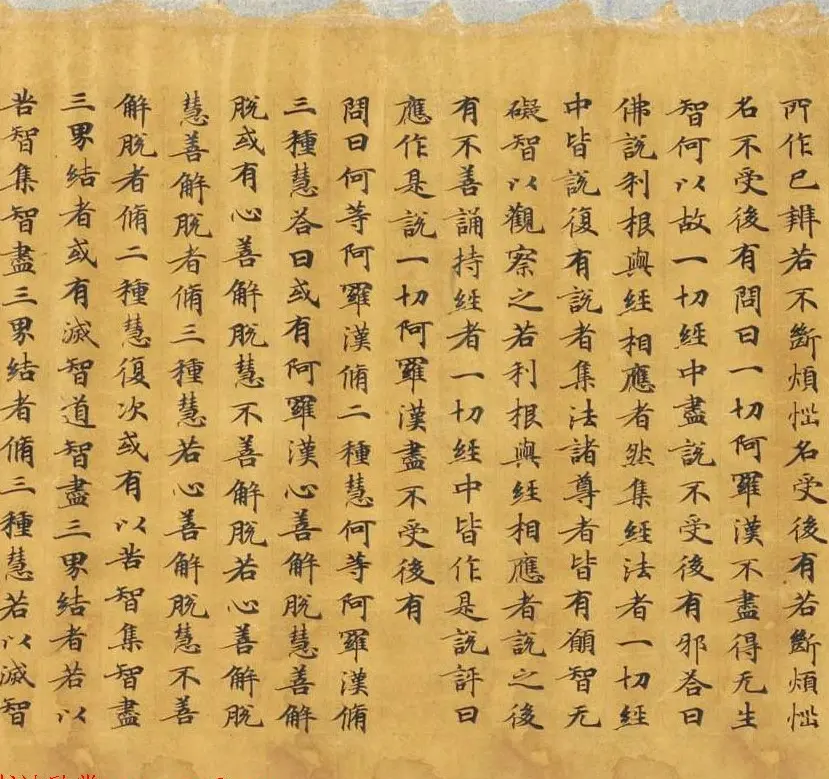 所作已辨若不斷煩惱名受後有若斷煩惱
名不受後有問曰一切阿羅漢不盡得无生
智何以故一切經中盡說不受後有邪荅曰
佛說利根與經相應者然集經法者一切經
中皆說復有說者集法諸尊者皆有願智无
礙智以觀察之若利根與經相應者說之後
有不善誦持經者一切經中皆作是說評曰
應作是說一切阿羅漢盡不受後有
問曰何等阿羅漢脩二種慧何等阿羅漢脩
三種慧荅曰或有阿羅漢心善解脫慧善解
脫或有心善解脫慧不善解脫若心善解脫
慧善解脫者脩三種慧若心善解脫慧不善
解脫者脩二種慧復次或有以苦智集智盡
三界結者或有滅智道智盡三界結者若以
苦智集智盡三界結者脩三種慧若以滅智